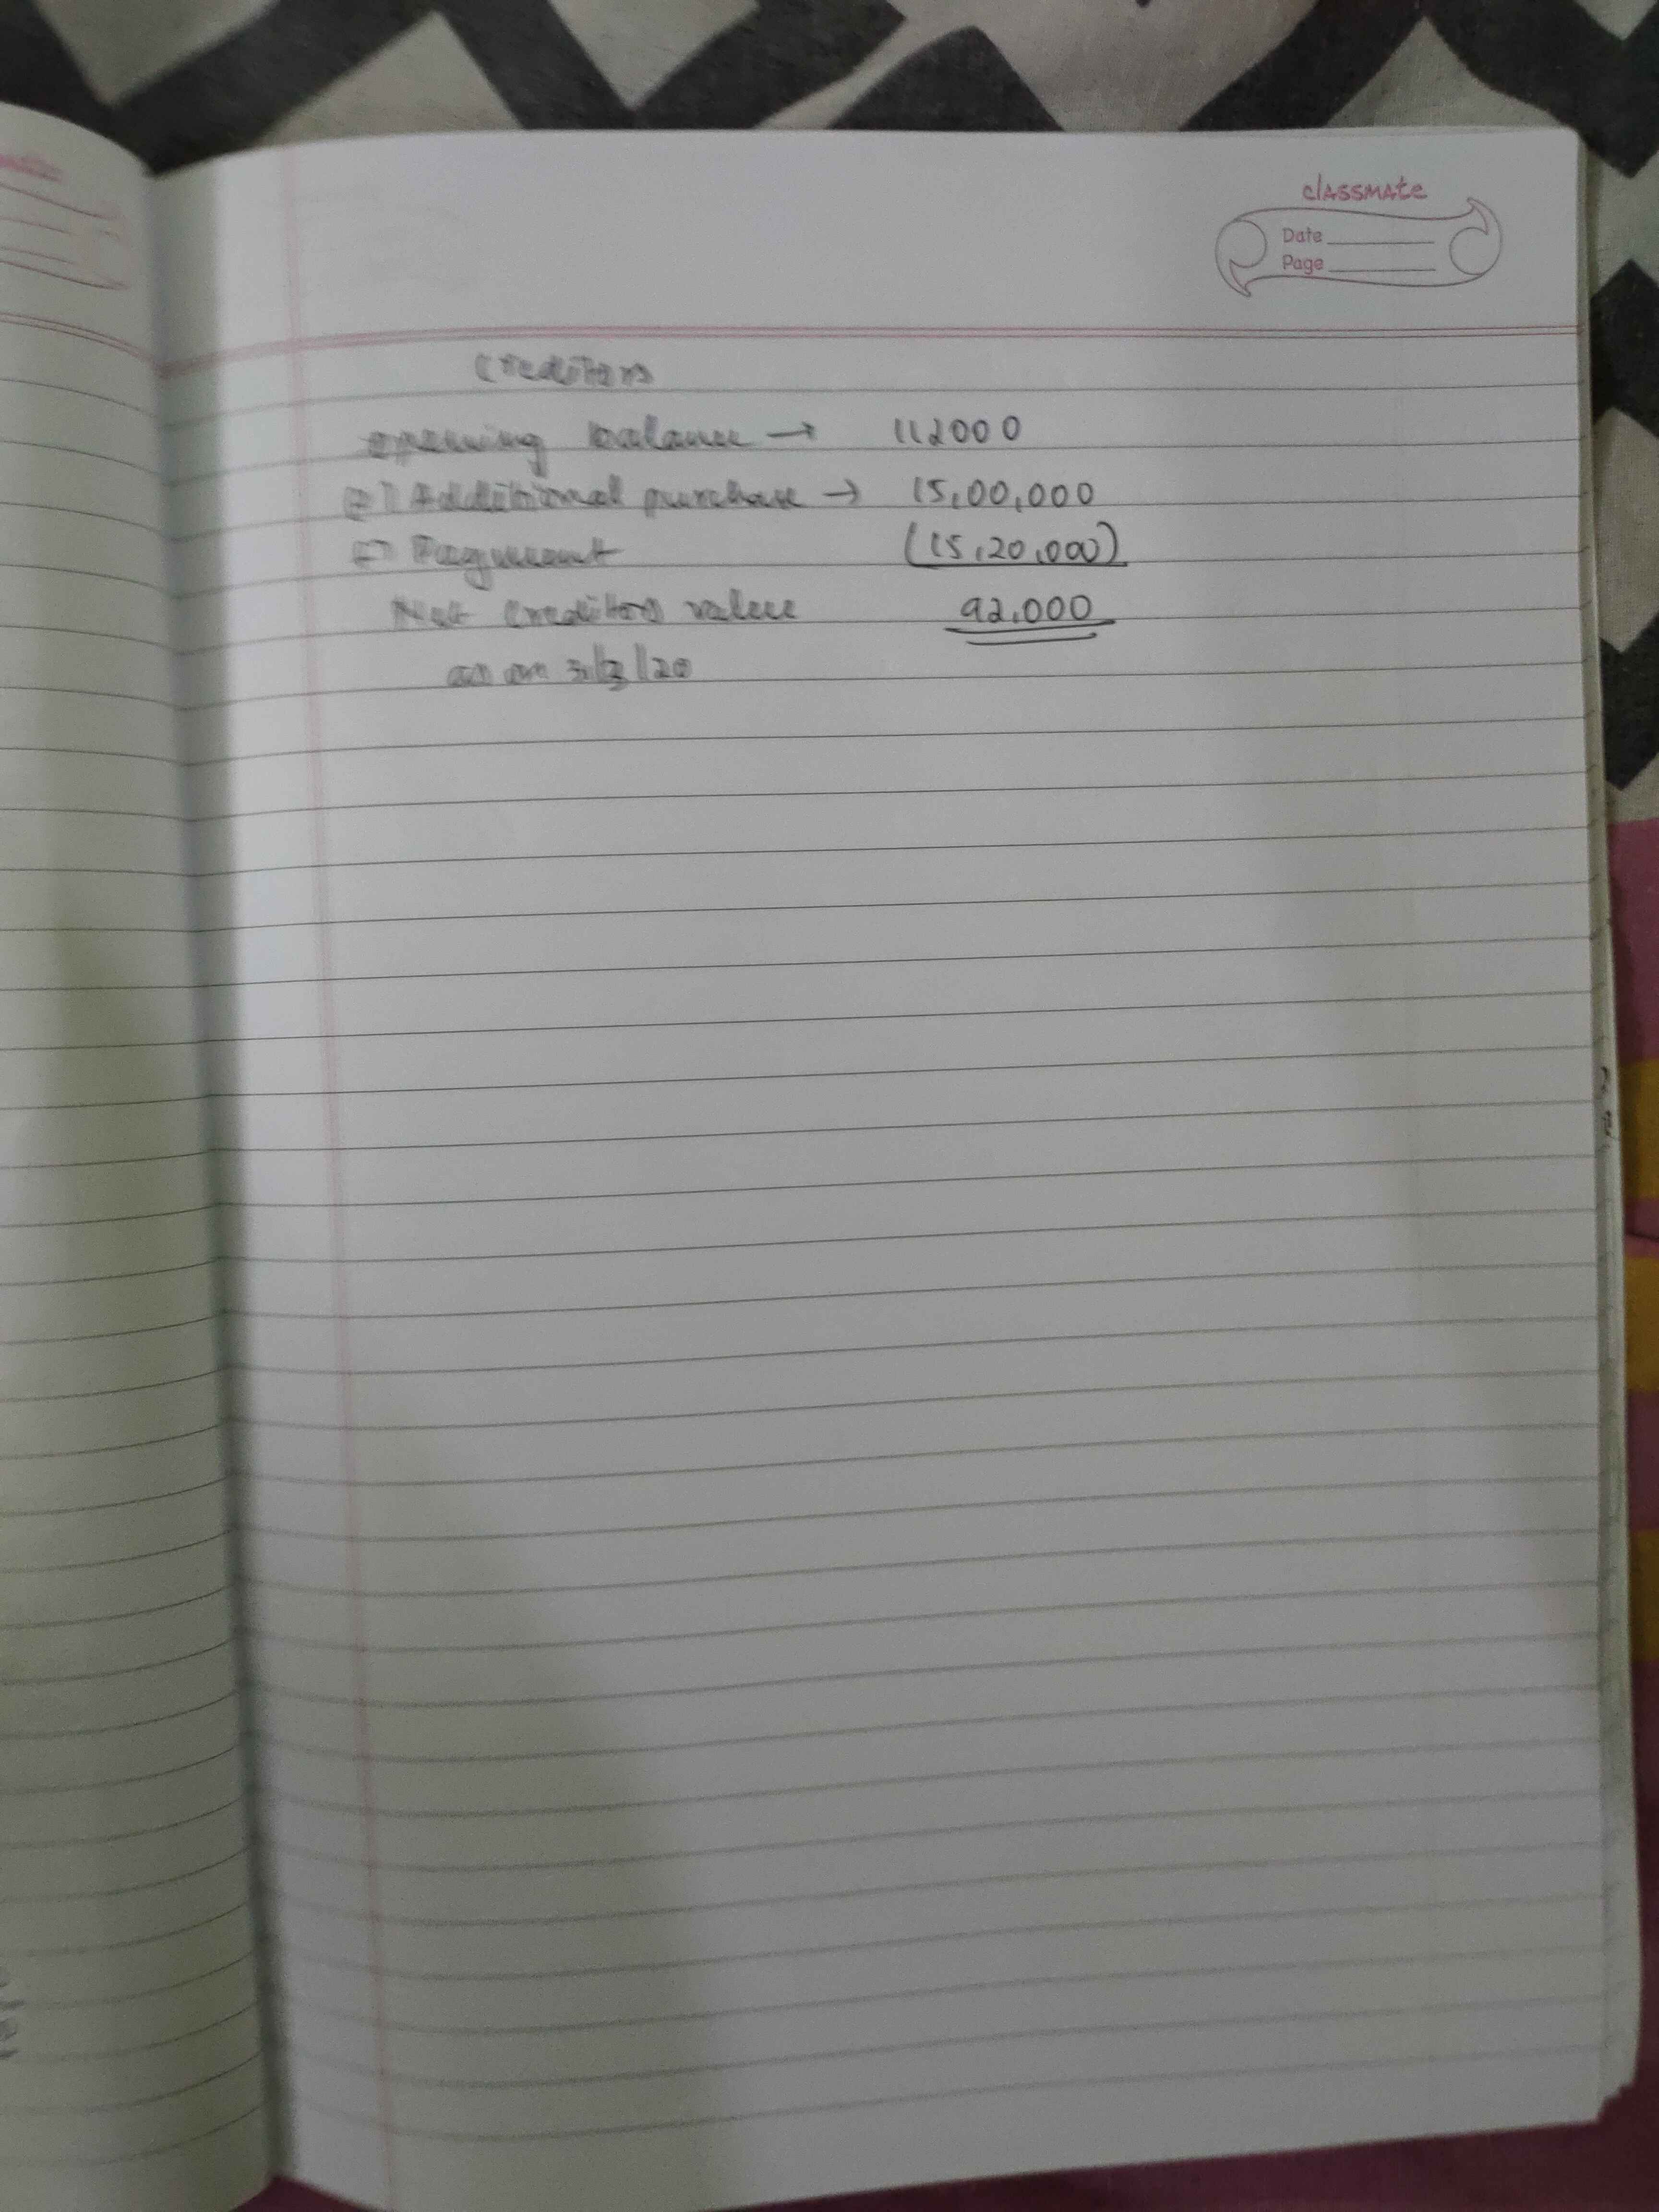 classmate
Date
Page
Creditors
opening balance → 112000
Additional purchase → 15,00,000
(-) Payment (15,20,000)
Net Creditors value 92,000
as on 31/3/20